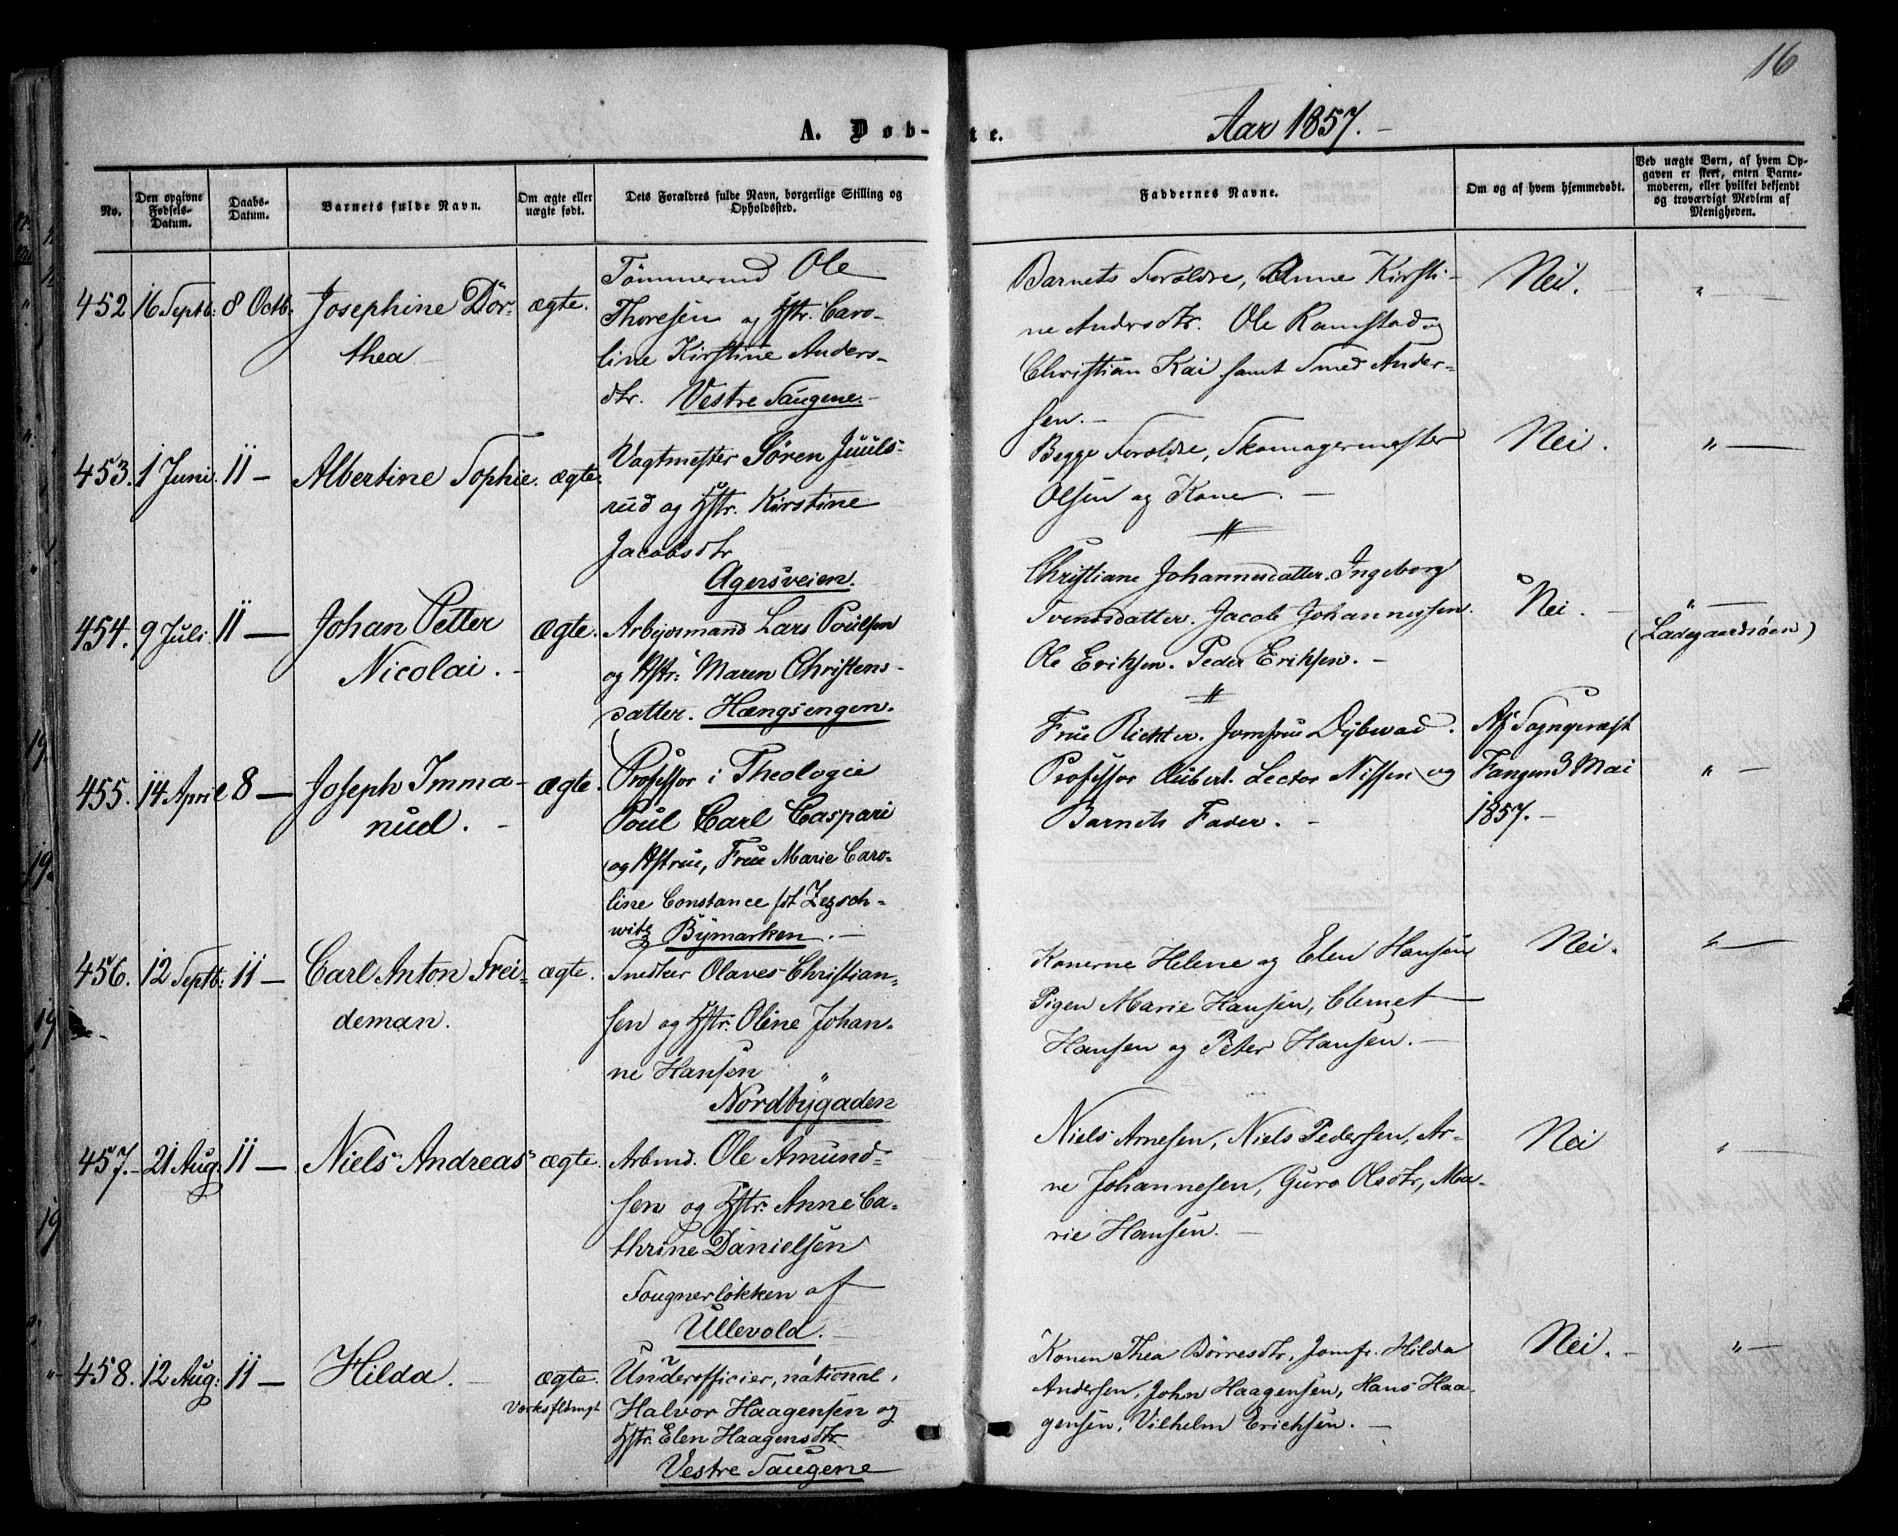 16
A. Døb- te. Aar 1857.-
No.
Den opgivne Fødsels-Datum.
Daabs-Datum.
Barnets fulde Navn.
Om ægte eller uægte født.
Dets Forældres fulde Navn, borgerlige Stilling og Opholdssted.
Faddernes Navne.
Om og af hvem hjemmedøbt.
Ved uægte Børn, af hvem Opgaven er skeet, enten Barnemoderen, eller hvilket bekjendt og troværdigt Medlem af Menigheden.
452 16 Septb: 8 Octb: Josephine Dör-
thea
ægte.
Tömmermd Ole
Thoresen og Hstr. Caro-
line Kirstine Anders-
dtr. Vestre Saugene.-
Barnets Foröldre, Anne Kirsti-
ne Andersdtr. Ole Ramstad og
Christian Kai samt Smed Ander-
sen.-
Nei.
"
453. 1 Juni. 11 - Albertine Sophie. ægte.
Vagtmester Sören Juuls-
rud og Hstr. Kirstine
Jacobsdtr
Agersveien.
Begge Foröldre, Skomagermester
Olsen og Kone. -
Nei.
" -
454. 9 Juli. 11 - Johan Petter
Nicolai. -
ægte.
Arbejdsmand Lars Poulsen
og Hstr: Maren Christens-
datter. Hængsengen.
Christiane Johannesdatter. Ingeborg
Svendsdatter. Jacob Johannessen.
Ole Eriksen. Peder Eriksen. -
Nei.
" -
(Ladegaardsöen)
455. 14 April 8 - Joseph Imma-
nuel. -
ægte.
Professor i Theologie
Poul Carl Caspari
og Hstrue, Frue Marie Caro-
line Constance fdt Zezsch-
witz Bymarken. -
Frue Richter. Jomfrue Dybwad.
Professor Aubert. Lector Nissen og
Barnets Fader. -
Af Sogneprest
Tangen d Mai
1857. -
" -
456. 12 Septb: 11 - Carl Anton Frei-
deman.
ægte.
Snedker Olaves Christian-
sen og Hstr: Oline Johan-
ne Hansen
Nordbygaden
Konerne Helene og Elen Hansen
Pigen Marie Hansen, Clemet
Hansen og Peter Hansen. -
Nei.
" -
457. - 21 Aug: 11 - Niels Andreas ægte.
Arbmd. Ole Amund-
sen og Hstr: Anne Ca-
thrine Danielsen
Fougnerløkken af
Ullevold. -
Niels Arnesen, Niels Pedersen, Ar-
ne Johannesen, Guro Olsdtr, Ma-
rie Hansen. -
Nei
" -
458. 12 Aug: 11 - Hilda. - ægte.
Underofficier, national,
Halvor Haagensen og
Hstr. Elen Haagensdtr
Vestre Saugene
Konen Thea Börresdtr, Jomfr. Hilda
Andersen, John Haagensen, Hans Haa-
gensen, Vilhelm Erichsen. -
Nei. -
" -